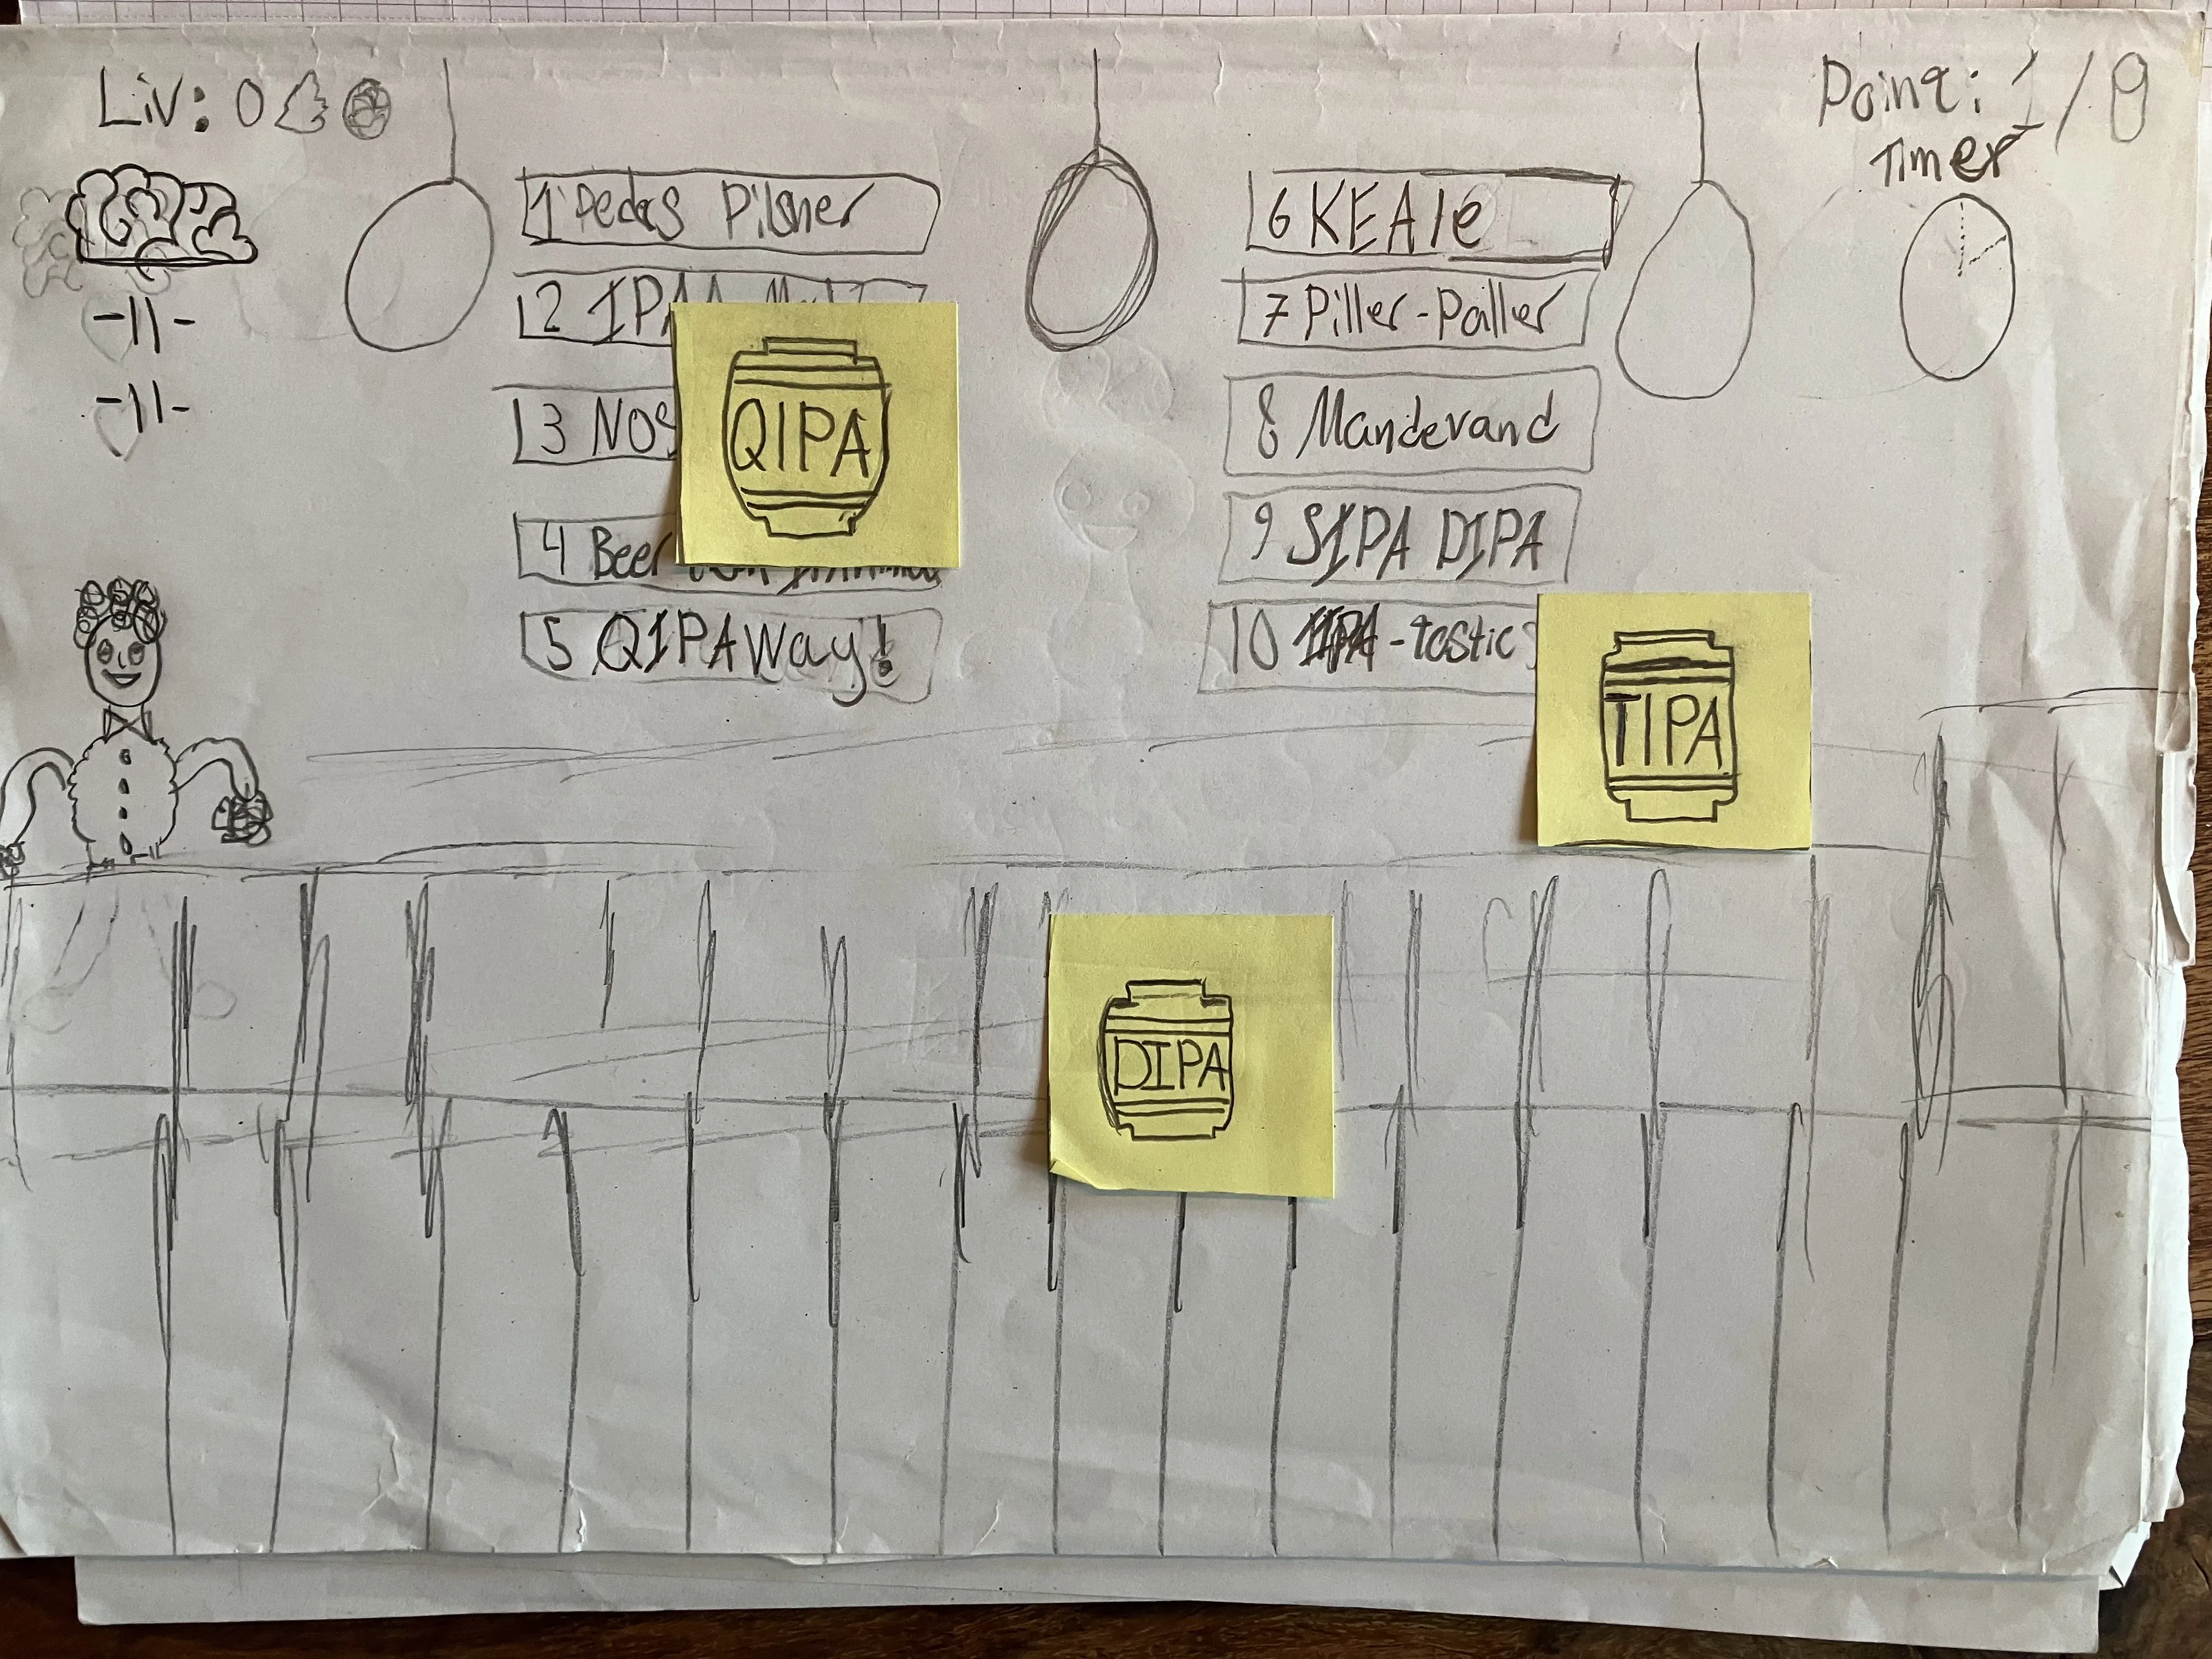 Liv: 0
Poing: 1/8
Timer
1 Pedas Pilsner
2 IPAA
3 NOS
4 Beer
5 QIPAWay!
6 KEAle
7 Piller-Paller
8 Mandevand
9 SIPA DIPA
10 -tastic
QIPA
TIPA
DIPA